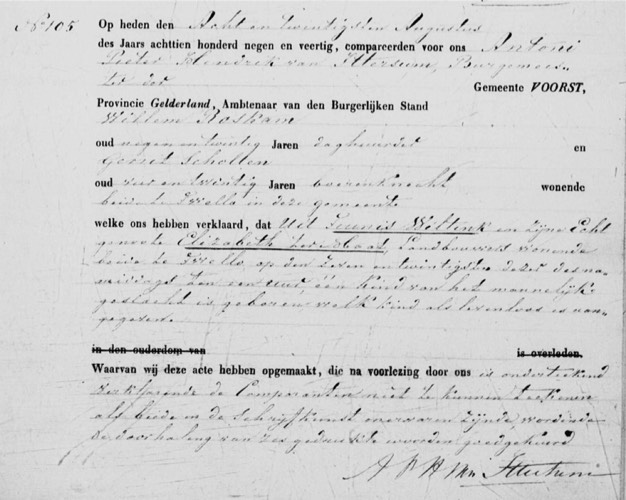 No 105
Op heden den Acht en twintigsten Augustus
des Jaars achttien honderd negen en veertig, compareerden voor ons Antoni
Pieter Hendrik van Ittersum, Burgemees-
ter der Gemeente VOORST,
Provincie Gelderland, Ambtenaar van den Burgerlijken Stand
Willem Roskam
oud negen en twintig Jaren daghuurder en
Gerrit Scholten
oud vier en twintig Jaren boerenknecht wonende
beide te Twello in deze gemeente
welke ons hebben verklaard, dat Uit Teunis Woltink en zijne Echt
genoote Elizabeth, Landbouwers wonende
beide te Twello op den zeven en twintigsten dezer des na-
middags ten een uur, één kind van het mannelijk
geslacht is geboren welk kind als levenloos is aan-
gegeven.
in den ouderdom van is overleden.
Waarvan wij deze acte hebben opgemaakt, die na voorlezing door ons is onderteekend
verklarende de Comparanten niet te kunnen teekenen
als beide in de Schrijfkunst onervaren zijnde, wordende
de doorhaling van zes gedrukte woorden goedgekeurd
A P H van Ittersum